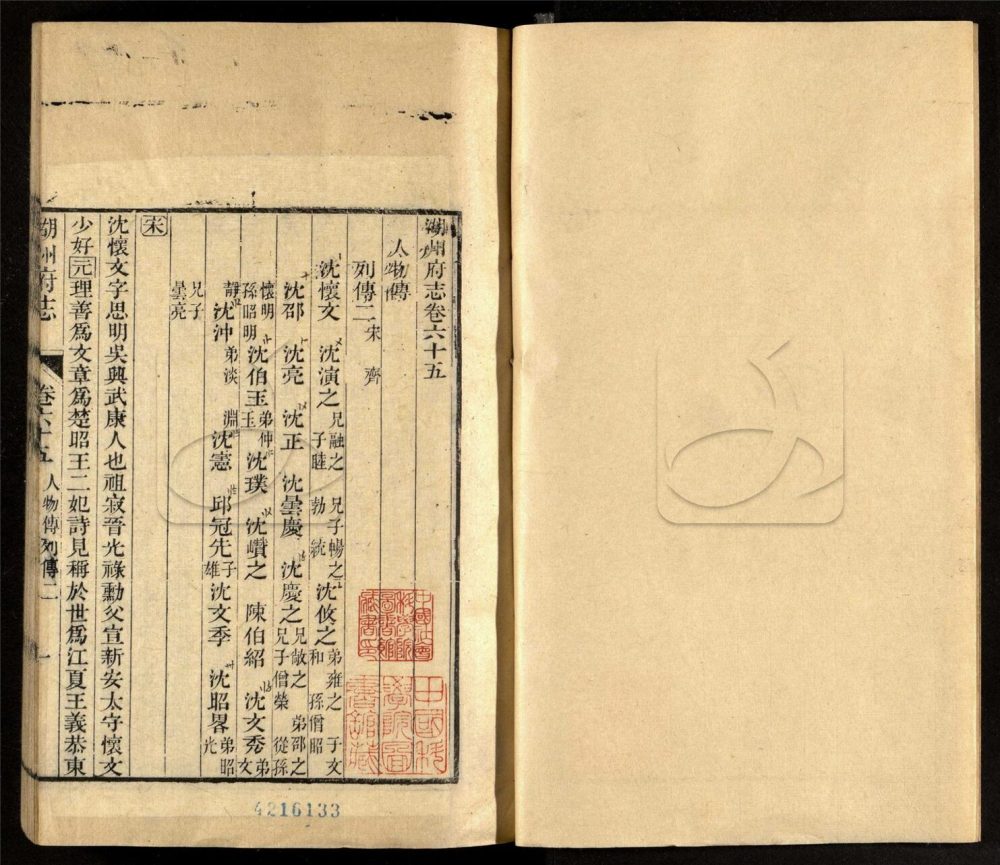 湖州府志卷六十五
人物傳
列傳二 宋 齊
沈懷文 沈演之 兄融之 兄子暢之 子睦 勃 統 沈攸之 弟雍之 子文和 孫僧昭
沈邵 沈亮 沈正 沈曇慶 沈慶之 兄敞之 弟邵之 兄子僧榮 從孫
懷明 孫昭明 沈伯玉 弟仲玉 沈璞 沈巑之 陳伯紹 沈文秀 弟文
靜 沈沖 弟淡 淵 沈憲 邱冠先 子雄 沈文季 沈昭畧 弟昭光
兄子曇亮
宋
沈懷文字思明吳興武康人也祖寂晉光祿勳父宣新安太守懷文
少好元理善爲文章爲楚昭王二妃詩見稱於世爲江夏王義恭東
湖州府志 卷六十五 人物傳列傳二 一
中國科學院圖書館藏
4216133